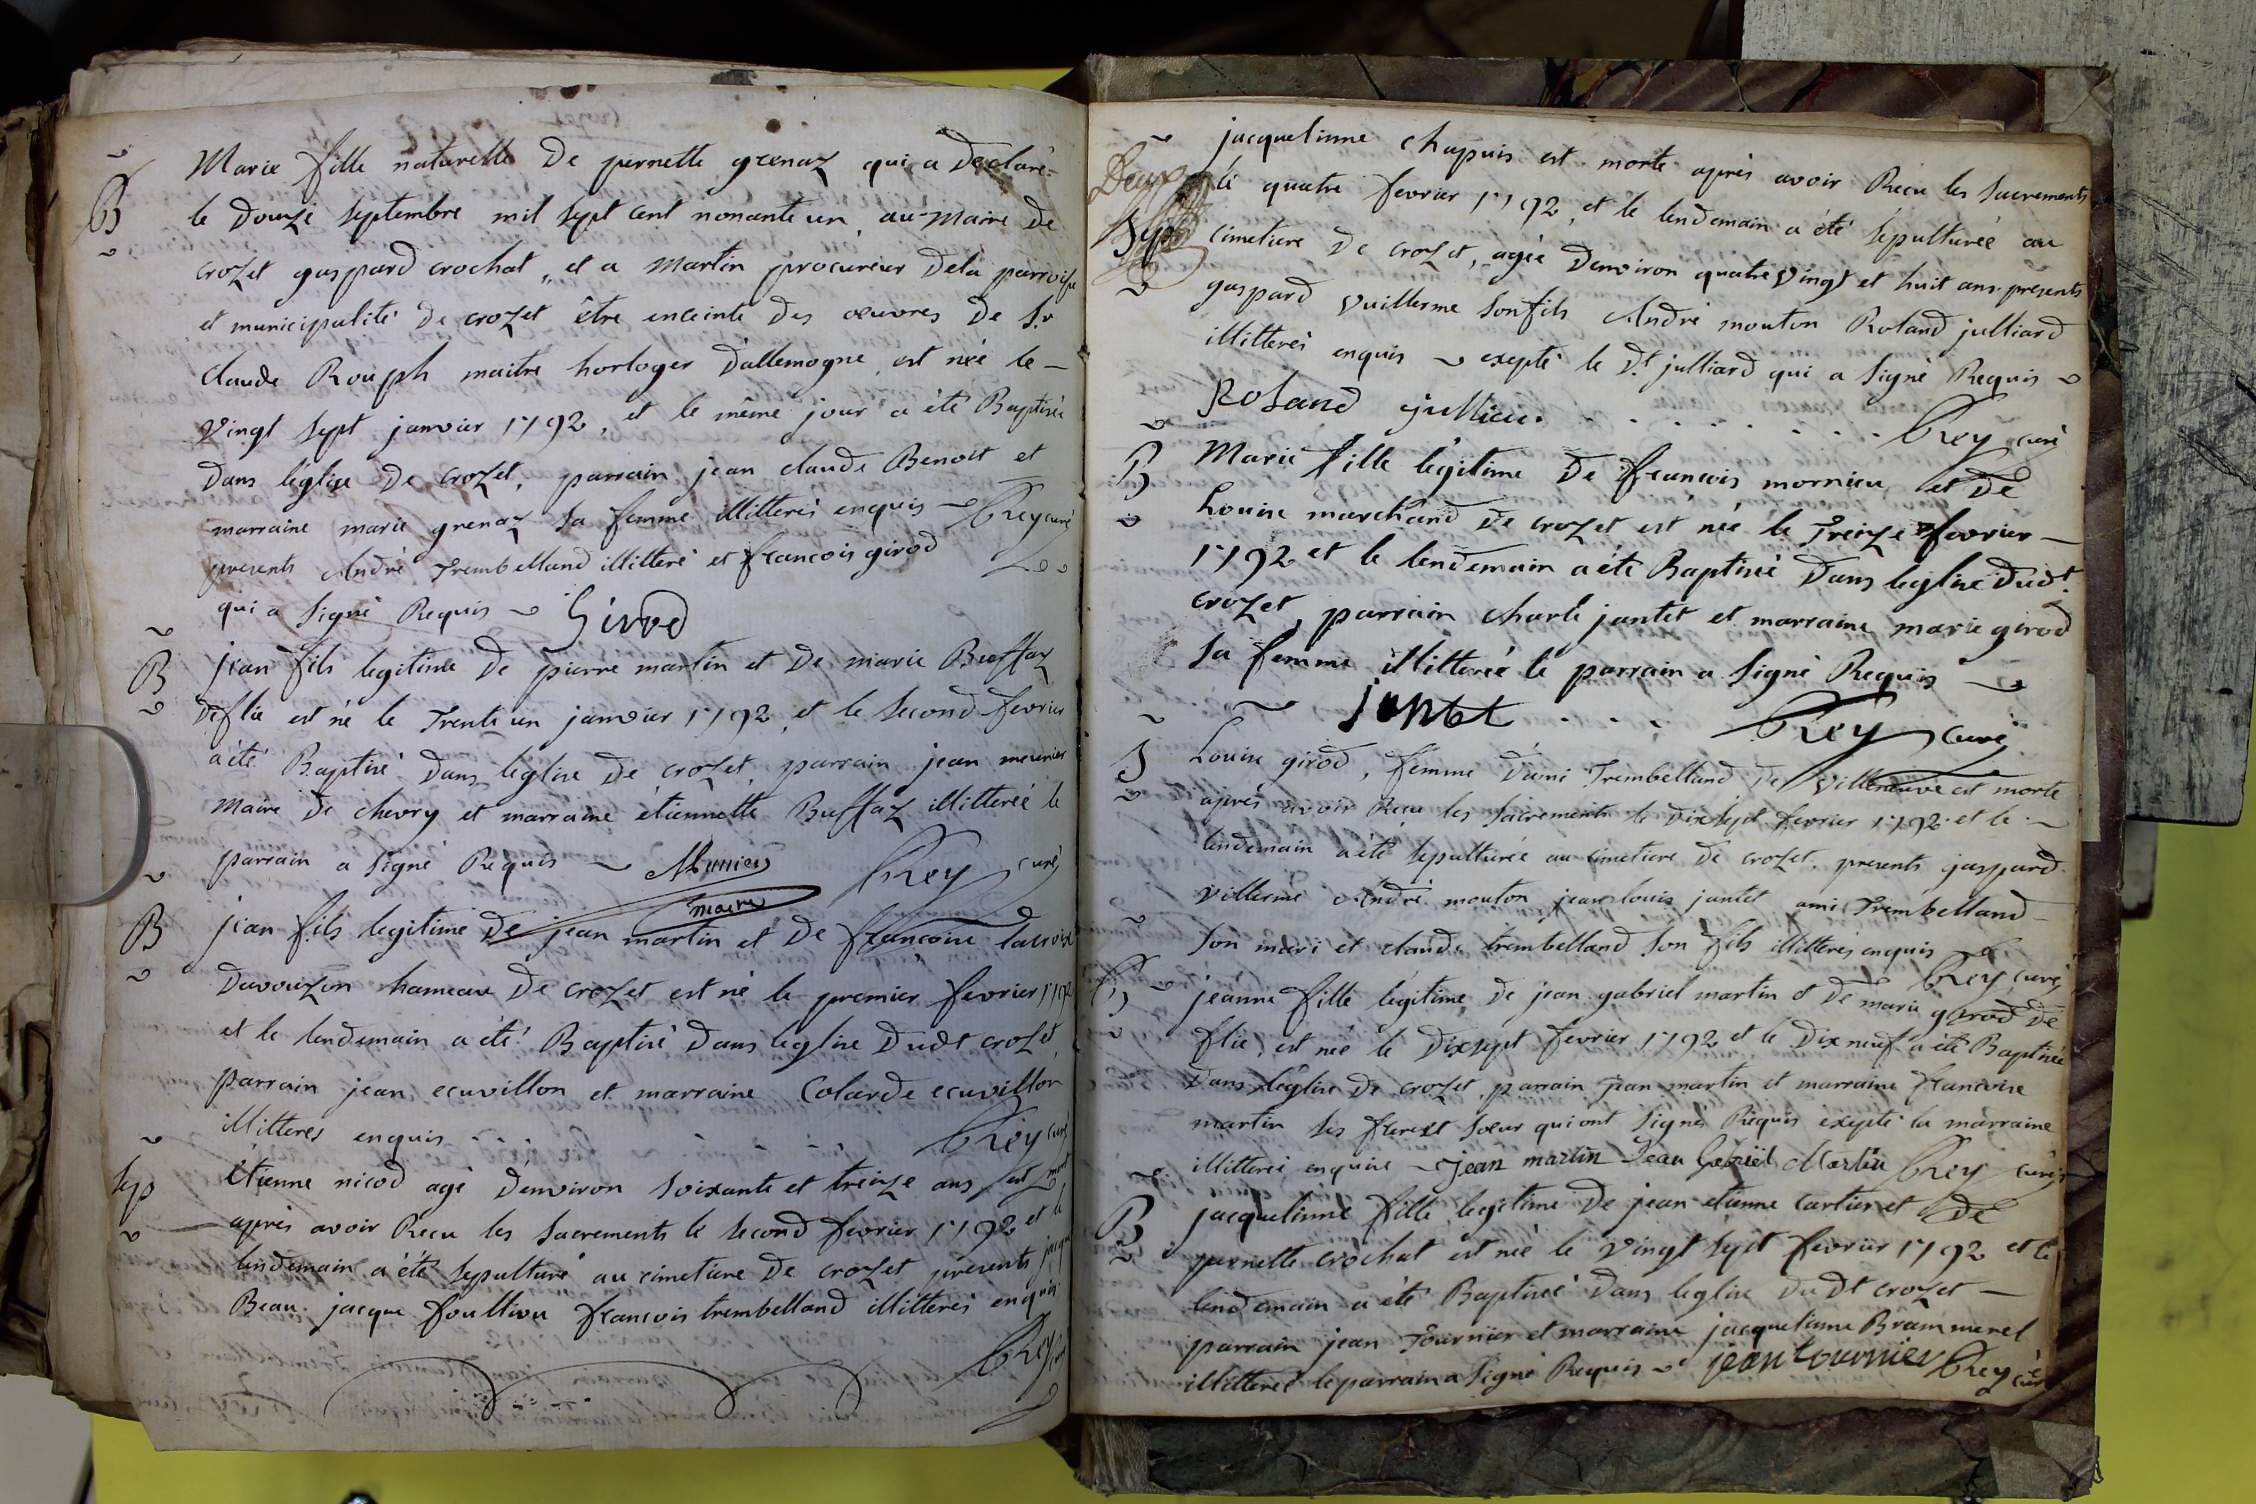 B
Marie fille naturelle De pernette grenaz qui a Declaré
le Douze septembre mil sept cent nonante un, au Maire de
crozet gaspard crochat, et a Martin procureur Dela parroisse
et municipalité De crozet être enceinte Des œuvres De Sr
Claude Rouph maitre horloger Dallemogne, est née le
vingt sept janvier 1792, et le même jour a été Baptisée
Dans leglise De crozet, parrain jean claude Benoit et
marraine marie grenaz sa femme illitterés enquis Rey curé
presents André Trembelland illitteré et francois girod
qui a signé Requis Girod
B
jean fils legitime De pierre martin et De marie Buffaz
Deflie est né le Trente un janvier 1792, et le second fevrier
a été Baptisé Dans leglise De crozet, parrain jean meunier
Maire De chevry et marraine étiennette Buffaz illitterée le
parrain a signé Requis Munier Rey curé
maire
B
jean fils legitime De jean martin et De francoise lacroix
Davouzon hameau De crozet est né le premier fevrier 1792
et le lendemain a été Baptisé Dans leglise Dudt crozet,
parrain jean ecuvillon et marraine Colarde ecuvillon
illitteres enquis Rey curé
sep
étienne nicod agé D'environ soixante et treize ans est mort
après avoir Recu les sacrements le second fevrier 1792 et le
lendemain a été sepulturé au cimetiere De crozet presents jacque
Beau. jacque foulliou francois trembelland illitterés enquis
Rey curé
Deux
Sep
jacquelinne chapuis est morte après avoir Recu les sacrements
le quatre fevrier 1792, et le lendemain a été sépulturée au
cimetiere De crozet, agée Denviron quatre vingt et huit ans presents
gaspard vuillerme son fils André mouton Roland julliard
illitterés enquis exepté le Dt julliard qui a signé Requis
Roland Rey curé
B
Marie fille légitime De francois mornieu et De
Louise marchand De crozet est née le Treize fevrier
1792 et le lendemain a été Baptisée Dans leglise Dudt
crozet, parrain charle jantet et marraine marie girod
sa femme illitterée le parrain a signé Requis
jantet Rey curé
S
Louise girod, femme D'ami Trembelland De villeneuve est morte
après avoir Recu les sacrements le Dixsept fevrier 1792 et le
lendemain a été sepulturée au cimetiere De crozet. presents gaspard
villerme André mouton jean louis jantet ami Trembelland
son mari et claude trembelland son fils illitterés enquis
Rey curé
B
jeanne fille légitime De jean gabriel martin & De marie girod De
flie, est née le Dixsept fevrier 1792 et le Dix neuf a été Baptisée
Dans léglise De crozet, parrain jean martin et marraine francoise
martin ses frere et sœur qui ont signé Requis exepté la marraine
illitterée enquise jean martin Jean Gabriel Martin Rey curé
B
jacquelinne fille legitime De jean etienne cartier et De
pernette crochat est née le vingt sept fevrier 1792 et le
lendemain a été Baptisée Dans leglise Dudt crozet
parrain jean Tournier et marraine jacquelinne Brammerel
illitterée le parrain a signé Requis jean tournier Rey curé